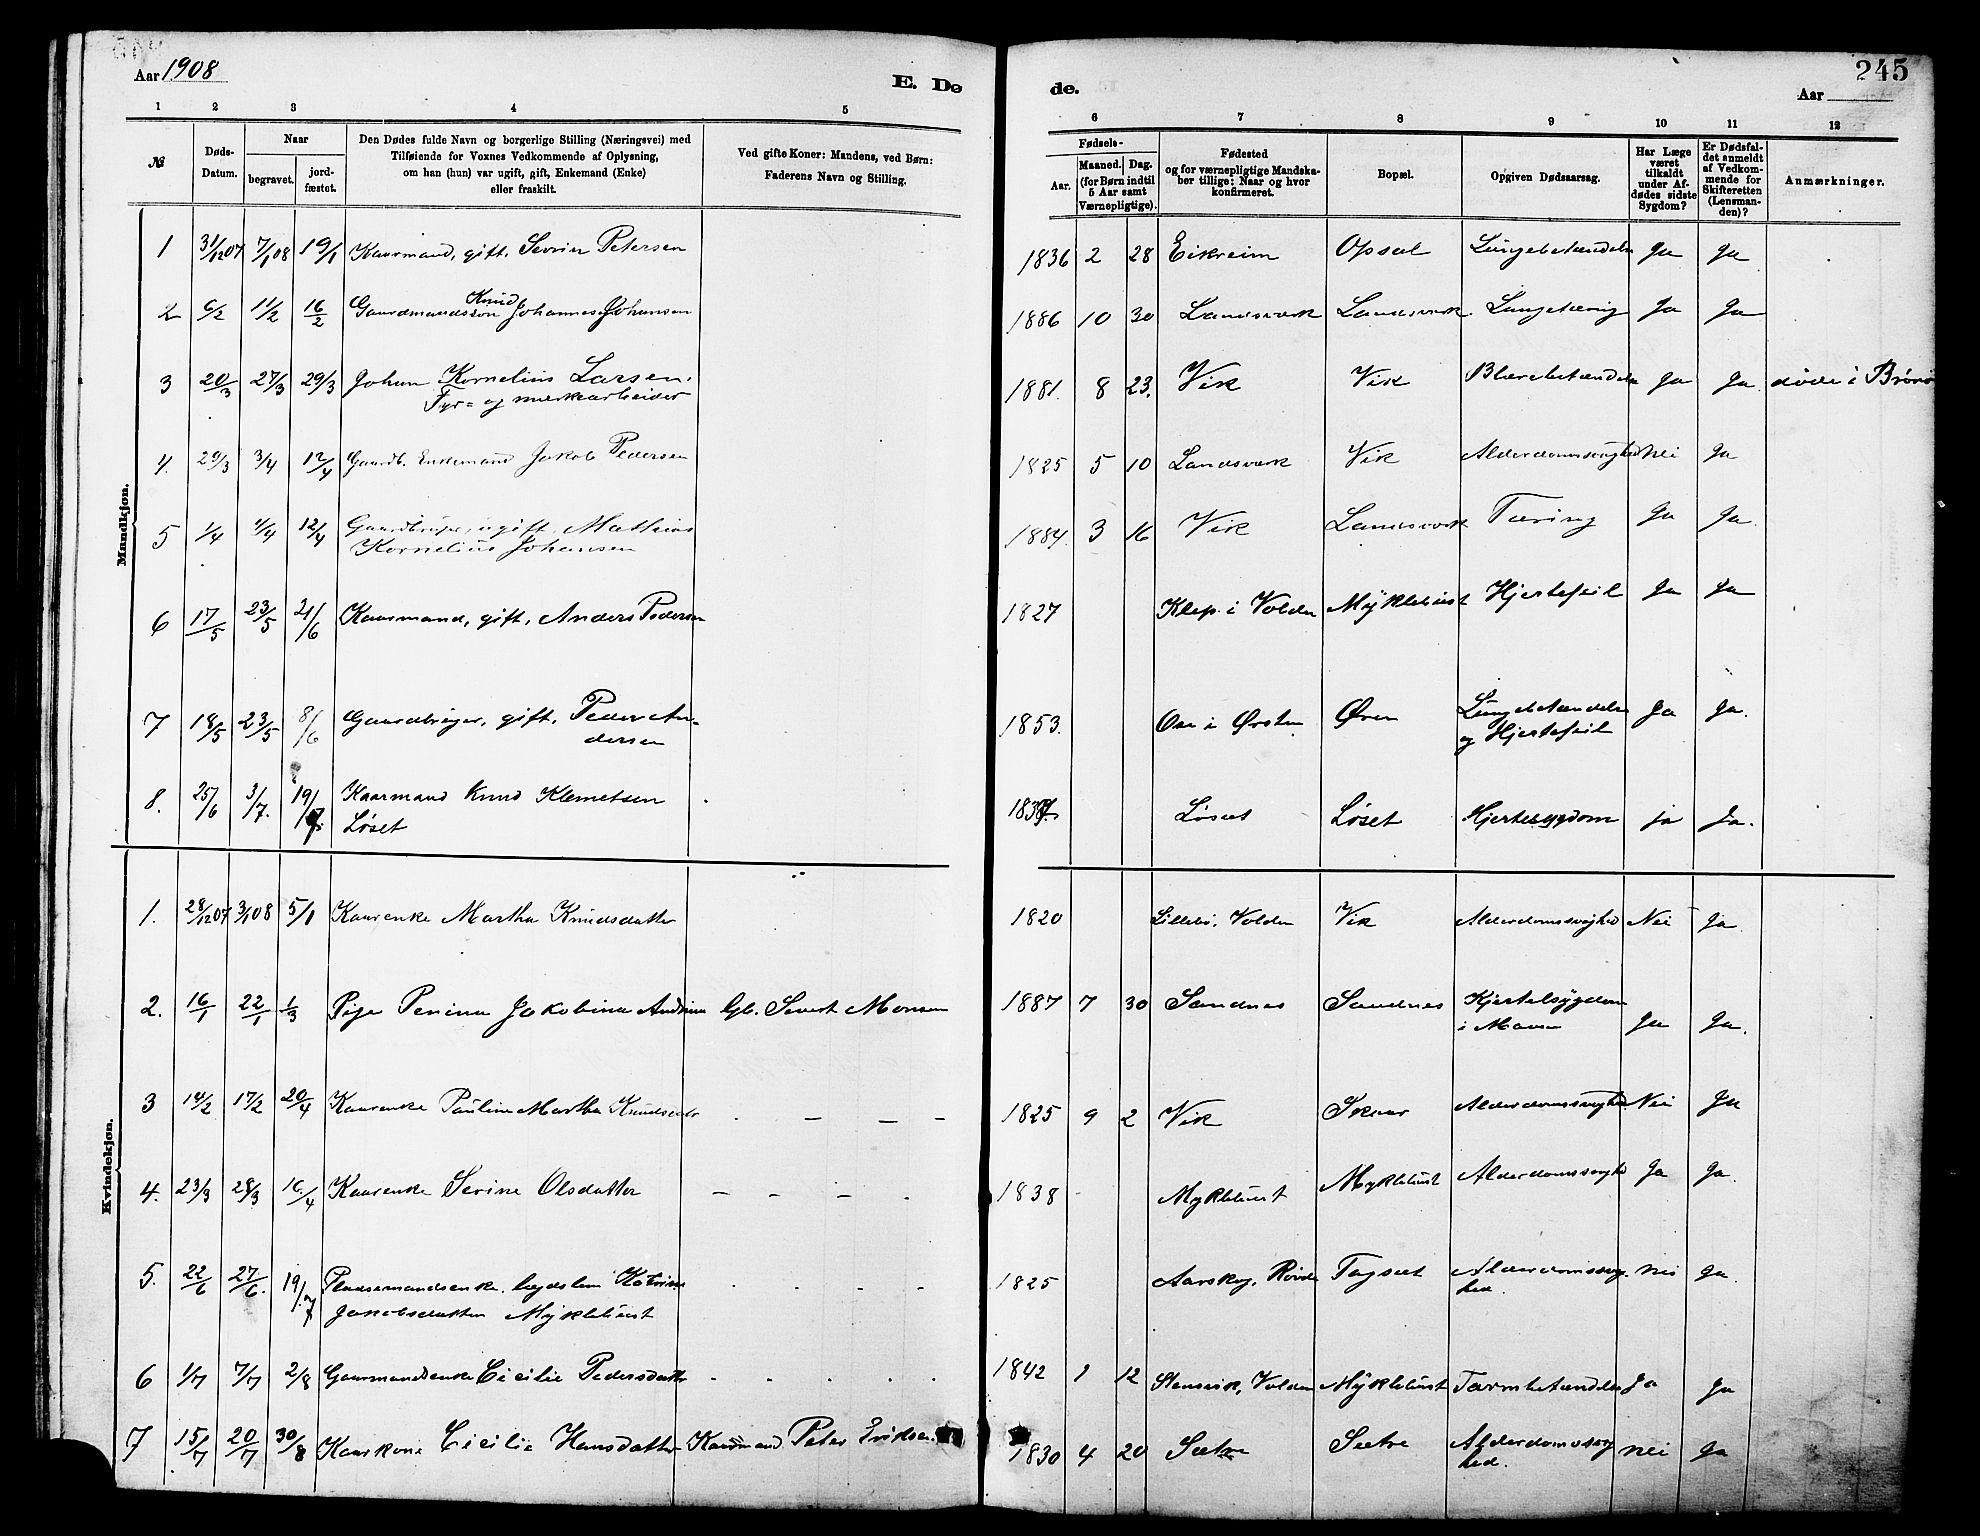 Aar 1908
E. Dø
1 2 3 4 5
№
Døds-Datum.
Naar
begravet.
jord-fæstet.
Den Dødes fulde Navn og borgerlige Stilling (Næringsvei) med
Tilføiende for Voxnes Vedkommende af Oplysning,
om han (hun) var ugift, gift, Enkemand (Enke)
eller fraskilt.
Ved gifte Koner: Mandens, ved Børn:
Faderens Navn og Stilling.
de.
245
Aar
6 7 8 9 10 11 12
Fødsels-
Aar.
Maaned. Dag.
(for Børn indtil
5 Aar samt
Værnepligtige).
Fødested
og for værnepligtige Mandska-
ber tillige: Naar og hvor
konfirmeret.
Bopæl.
Opgiven Dødsaarsag.
Har Læge
været
tilkaldt
under Af-
dødes sidste
Sygdom?
Er Dødsfal-
det anmeldt
af Vedkom-
mende for
Skifteretten
(Lensman-
den)?
Anmærkninger.
Mandkjøn.
1 31/12 07 7/1 08 19/1 Kaarmand, gift, Sevrin Petersen 1836 2 28 Eikreim Opsal Lungebetændelse Ja Ja
2 6/2 11/2 16/2 Gaardmandssøn Knud Johannes Johansen 1886 10 30 Landsverk Landsverk Lungetæring Ja Ja
3 20/3 27/3 29/3 Johan Kornelius Larsen, 1881. 8 23. Vik Vik Blærebetændelse Ja Ja døde i Brønø
Fyr- og merkearbeider
4. 29/3 3/4 12/4 Gaardb. Enkemand Jakob Pedersen 1825 5 10 Landsverk Vik Alderdomssvaghed Nei Ja
5 1/4 4/4 12/4 Gaardbruger, ugift, Mathias 1884. 3 16 Vik Landsverk Tæring Ja Ja.
Kornelius Johansen
6 17/5 23/5 21/6 Kaarmand, gift, Anders Pedersen 1827 Klep i Volden Myklebust Hjertefeil Ja Ja
7 18/5 23/5 8/6 Gaardbruger, gift, Peder An- 1853. Ose i Ørsten Øren Lungebetændelse Ja Ja.
dersen og Hjertefeil
8. 25/6 3/7. 19/7 Kaarmand Knud Klemetsen Løset Løset Hjertesygdom ja Ja.
Løset
Kvindekjøn.
1. 28/12 07 3/1 08 5/1 Kaarenke Martha Knudsdatter 1820 Lillebø, Volden Vik Alderdomssvaghed Nei Ja
2. 16/1 22/1 1/3 Pige Penina Jakobina Andrina Gb. Sivert Monsen 1887 7 30 Sandnes Sandnes Kjertelsygdom Ja Ja.
i Maven
3 14/2 17/2 20/4 Kaarenke Pauline Martha Knudsdatr 1825 9 2 Vik Skaar Alderdomssvaghed Nei Ja
4. 23/3 28/3 16/4 Kaarenke Serine Olsdatter 1838 Myklebust Myklebust Alderdomssvaghed Ja Ja.
5. 22/6 27/6. 19/7 Pladsemandsenke, lægdslem Katrine 1825 Aarskog, Røvde Tagset Alderdomssvag- nei Ja.
Jakobsdatter Myklebust hed.
6 1/7 7/7 2/8 Gaarmandsenke Cicilie Pedersdatter 1842 1 12 Stensvik, Volden Myklebust Tarmbetændelse Ja Ja
7 15/7 20/7 30/8 Kaarkone Cicilie Hansdatter Kaarmand. Peter Eriksen 1830 4 20 Sætre Sætre Alderdomssvag- nei Ja
hed.